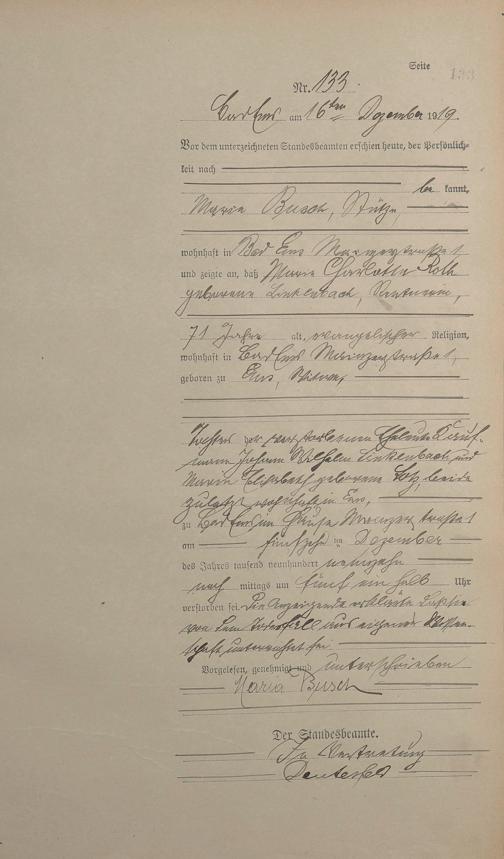 Seite 133
Nr. 133.
Bad Ems am 16ten Dezember 1919.
Vor dem unterzeichneten Standesbeamten erschien heute, der Persönlich-
keit nach
be kannt,
Marie Busch, Stütze,
wohnhaft in Bad Ems Mainzerstraße 1
und zeigte an, daß Marie Charlotte Roth
geborene Linkenbach, Rentnerin,
71 Jahre alt, evangelischer Religion,
wohnhaft in Bad Ems Mainzerstraße 1,
geboren zu Ems, Witwe,
Tochter der verstorbenen Eheleute Kauf-
mann Johann Wilhelm Linkenbach und
Marie Elisabeth geborene Lotz, beide
zuletzt wohnhaft in Ems,
zu Bad Ems im Hause Mainzerstraße 1
am fünfzehnten Dezember
des Jahres tausend neunhundert neunzehn
nach mittags um fünf ein halb Uhr
verstorben sei. Die Anzeigende erklärte, daß sie
von dem Todesfall aus eigener Wissen-
schaft unterrichtet sei
Vorgelesen, genehmigt und unterschrieben
Maria Busch
Der Standesbeamte.
In Vertretung